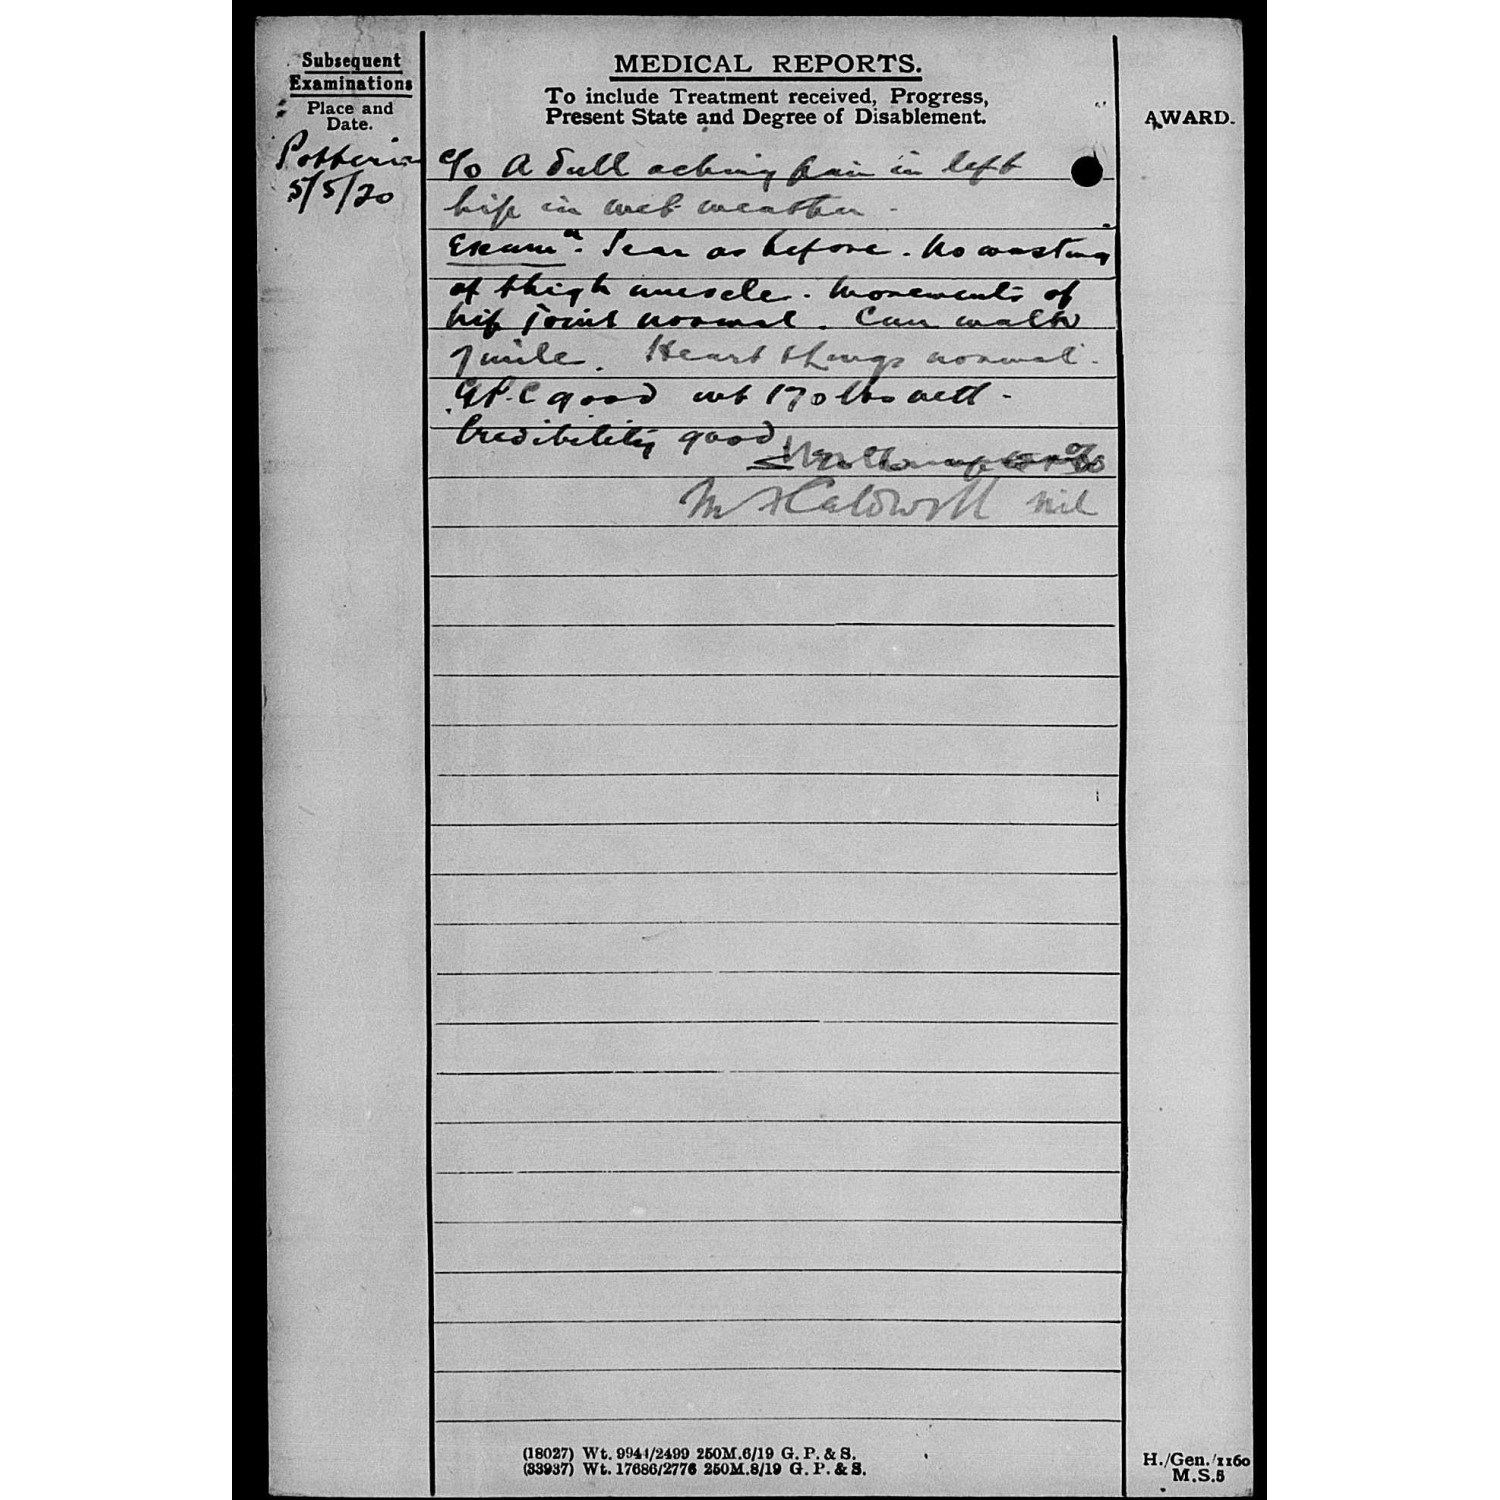 Subsequent
Examinations
Place and
Date.
MEDICAL REPORTS.
To include Treatment received, Progress,
Present State and Degree of Disablement.
AWARD.
Potteries
5/5/20
c/o A dull aching pain in left
hip in wet weather -
Examn. Scar as before. No wasting
of thigh muscle. Movements of
hip joint normal. Can walk
7 mile. Heart & Lungs normal.
G.P.C good wt 170 lbs nett -
Credibility good
Caldwell nil
(18027) Wt. 9941/2499 250M.6/19 G. P. & S.
(33937) Wt. 17686/2776 250M.8/19 G. P. & S.
H./Gen./1160
M.S.5